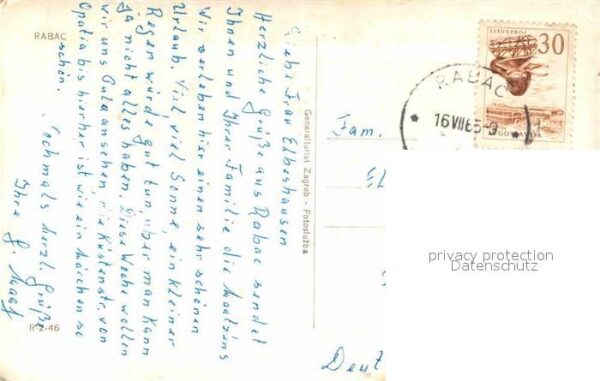 RABAC
Liebe Frau Elbeshausen
Herzliche Grüße aus Rabac sendet
Ihnen und Ihrer Familie die
Wir verleben hier einen sehr schönen
Urlaub. Viel viel Sonne, ein kleiner
Regen würde gut tun, aber man kann
ja nicht alles haben. Diese Woche wollen
wir uns Pula ansehen, die Küstenstr. von
Opatia bis hierher ist wie ein Märchen so
schön.
Nochmals herzl. Grüße
Ihre G. Maaß
R-2-46
Generalturist Zagreb - Fotoslužba
30
RABAC
16 VII 65-9
Fam.
Deut
privacy protection
Datenschutz